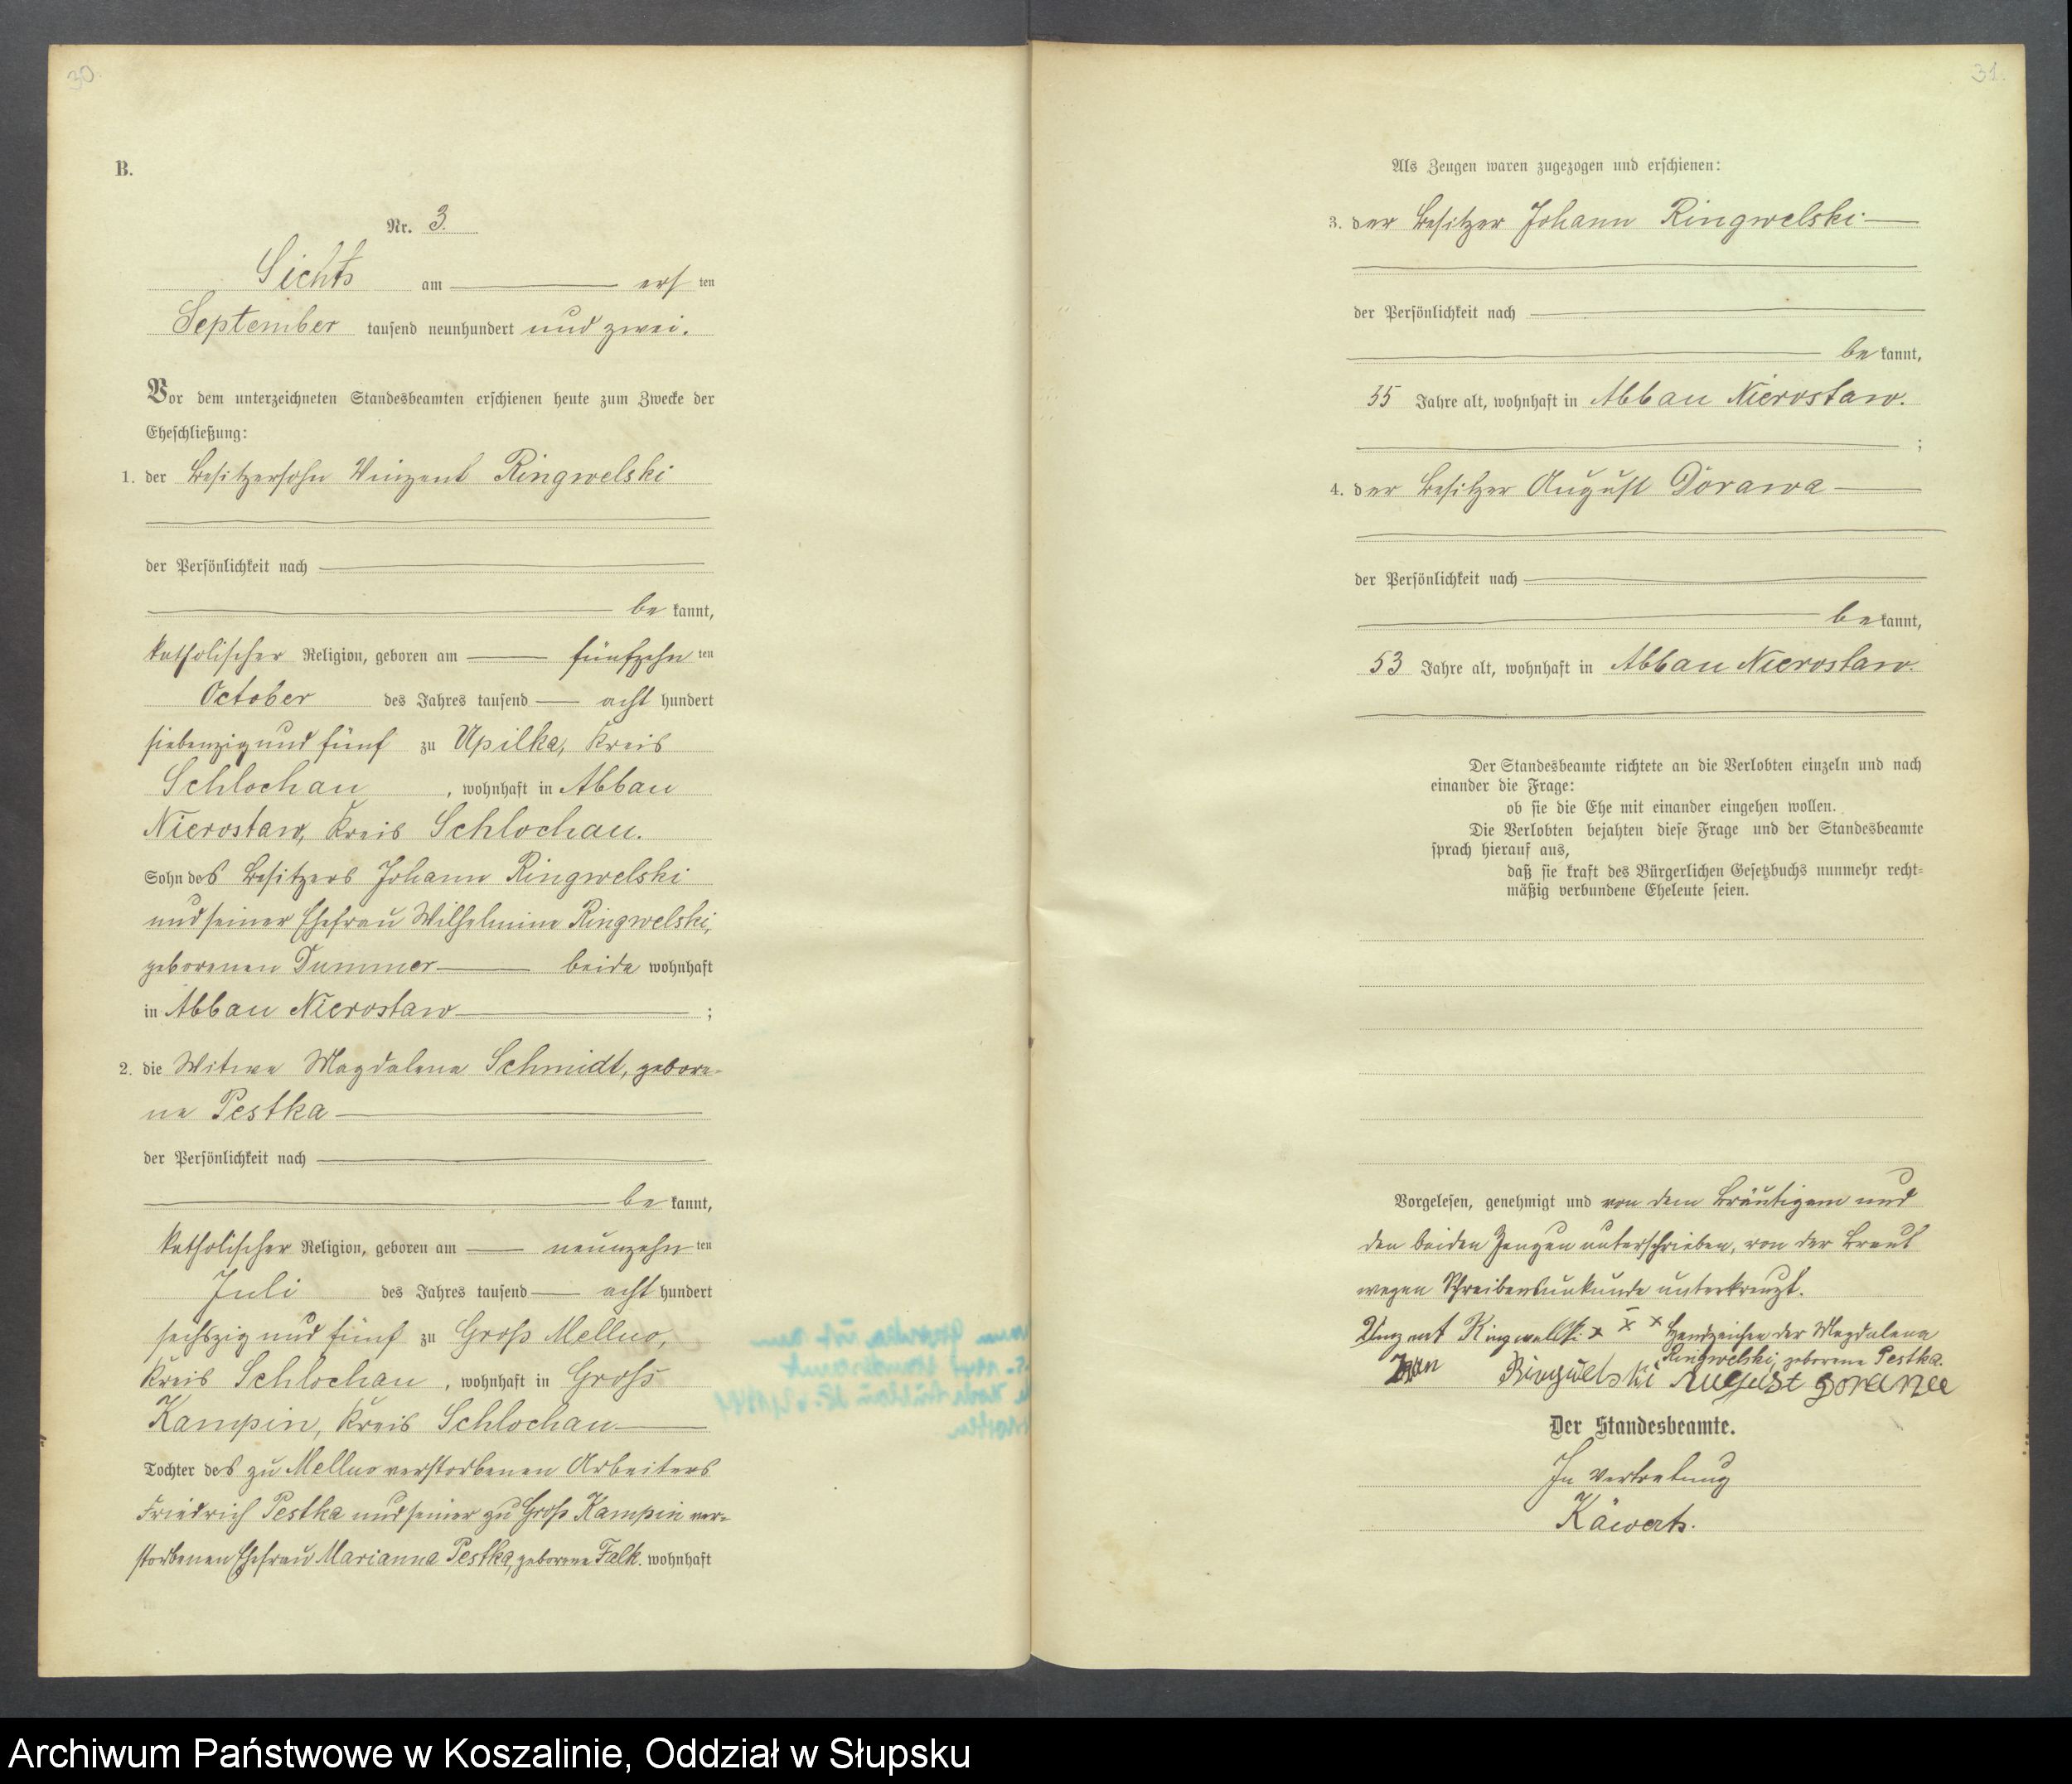 30.
B.
Nr. 3.
Lichts am ersten
September tausend neunhundert und zwei.
Vor dem unterzeichneten Standesbeamten erschienen heute zum Zwecke der
Eheschließung:
1. der Besitzersohn Vinzent Ringwelski
der Persönlichkeit nach
bekannt,
katholischer Religion, geboren am fünfzehnten
October des Jahres tausend achthundert
siebenzig und fünf zu Upilka, Kreis
Schlochau, wohnhaft in Abbau
Nierostaw, Kreis Schlochau.
Sohn des Besitzers Johann Ringwelski
und seiner Ehefrau Wilhelmine Ringwelski,
geborenen Dummer beide wohnhaft
in Abbau Nierostaw ;
2. die Witwe Magdalena Schmidt, gebore-
ne Pestka
der Persönlichkeit nach
bekannt,
katholischer Religion, geboren am neunzehnten
Juli des Jahres tausend achthundert
sechszig und fünf zu Groß Mellno,
Kreis Schlochau, wohnhaft in Groß
Kampin, Kreis Schlochau
Tochter des zu Mellno verstorbenen Arbeiters
Friedrich Pestka und seiner zu Groß Kampin ver-
storbenen Ehefrau Marianna Pestka, geborene Falk. wohnhaft
31.
Als Zeugen waren zugezogen und erschienen:
3. der Besitzer Johann Ringwelski
der Persönlichkeit nach
bekannt,
55 Jahre alt, wohnhaft in Abbau Nierostaw.
;
4. der Besitzer August Dorawa
der Persönlichkeit nach
bekannt,
53 Jahre alt, wohnhaft in Abbau Nierostaw.
Der Standesbeamte richtete an die Verlobten einzeln und nach
einander die Frage:
ob sie die Ehe mit einander eingehen wollen.
Die Verlobten bejahten diese Frage und der Standesbeamte
sprach hierauf aus,
daß sie kraft des Bürgerlichen Gesetzbuchs nunmehr recht-
mäßig verbundene Eheleute seien.
Vorgelesen, genehmigt und von dem Bräutigam und
den beiden Zeugen unterschrieben, von der Braut
wegen Schreibensunkunde unterkreuzt.
Vinzent Ringwelski. x x x Handzeichen der Magdalena
Ringwelski, geborene Pestka.
Ringwelski August Dorawa
Der Standesbeamte.
In Vertretung
Käwert.
Archiwum Państwowe w Koszalinie, Oddział w Słupsku